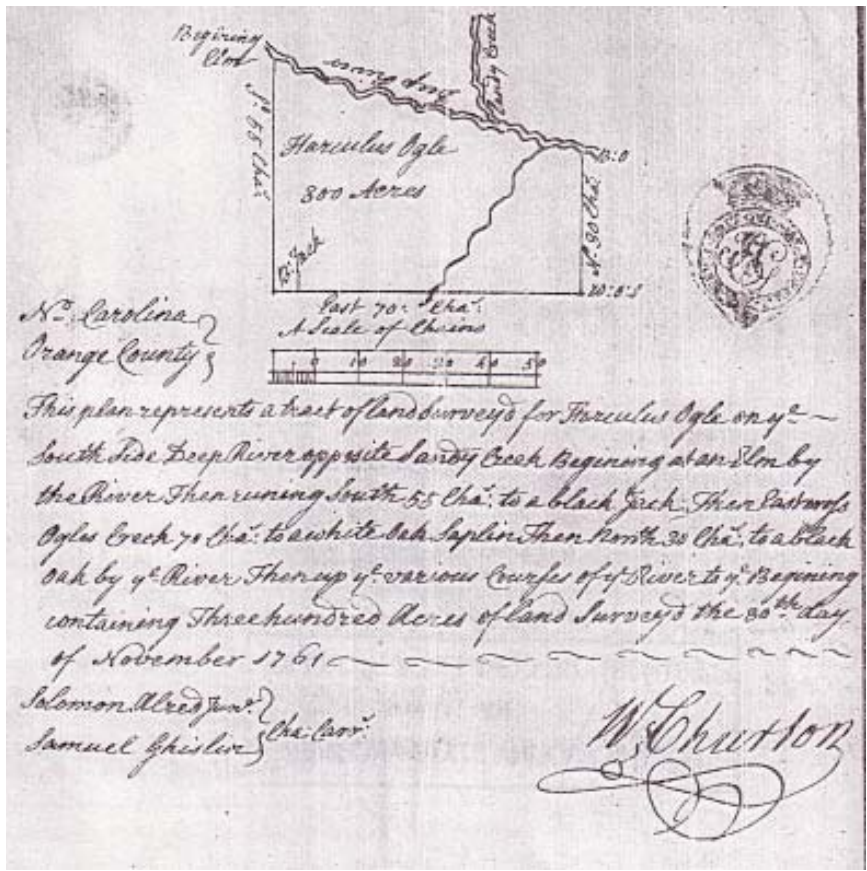 Begining
Elm
Deep River
Sandy Creek
So. 55 Cha.
Harculus Ogle
300 Acres
B:O
No. 30 Cha.
B: Jack
W:O:S
East 70 Cha:
A Scale of Chains
No. Carolina
Orange County
0 10 20 30 40 50
This plan represents a tract of land Survey'd for Harculus Ogle on ye
South Side Deep River opposite Sandy Creek Begining at an Elm by
the River Then runing South 55 Cha: to a black Jack Then East cross
Ogles Creek 70 Cha: to a white Oak Saplin Then North 30 Cha: to a black
Oak by ye River Then up ye various Courses of ye River to ye Begining
containing Three hundred Acres of land Survey'd the 30th day
of November 1761
Solomon Alred Junr.
Samuel Ghislin
Cha: Carrs.
W Churton